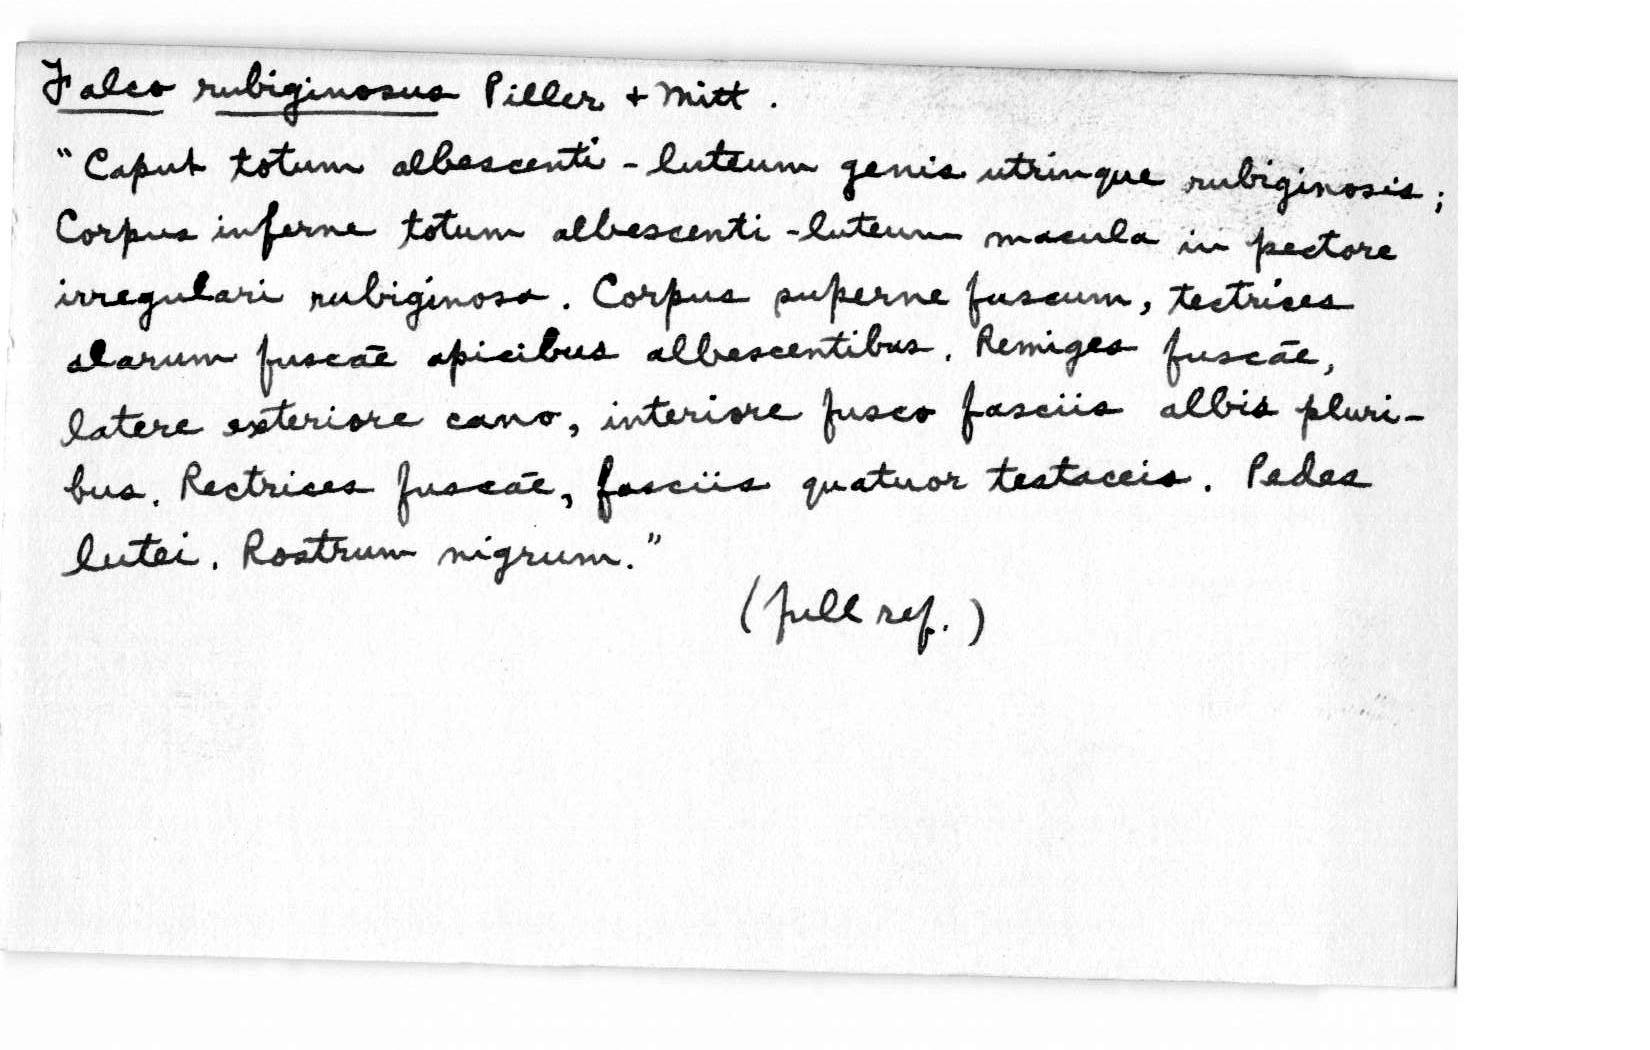 Falco rubiginosus Piller + Mitt.
"Caput totum albescenti-luteum genis utrinque rubiginosis;
Corpus inferne totum albescenti-luteum macula in pectore
irregulari rubiginosa. Corpus superne fuscum, tectrices
alarum fuscae apicibus albescentibus. Remiges fuscae,
latere exteriore cano, interiore fusco fasciis albis pluri-
bus. Rectrices fuscae, fasciis quatuor testaceis. Pedes
lutei. Rostrum nigrum."
(full ref.)